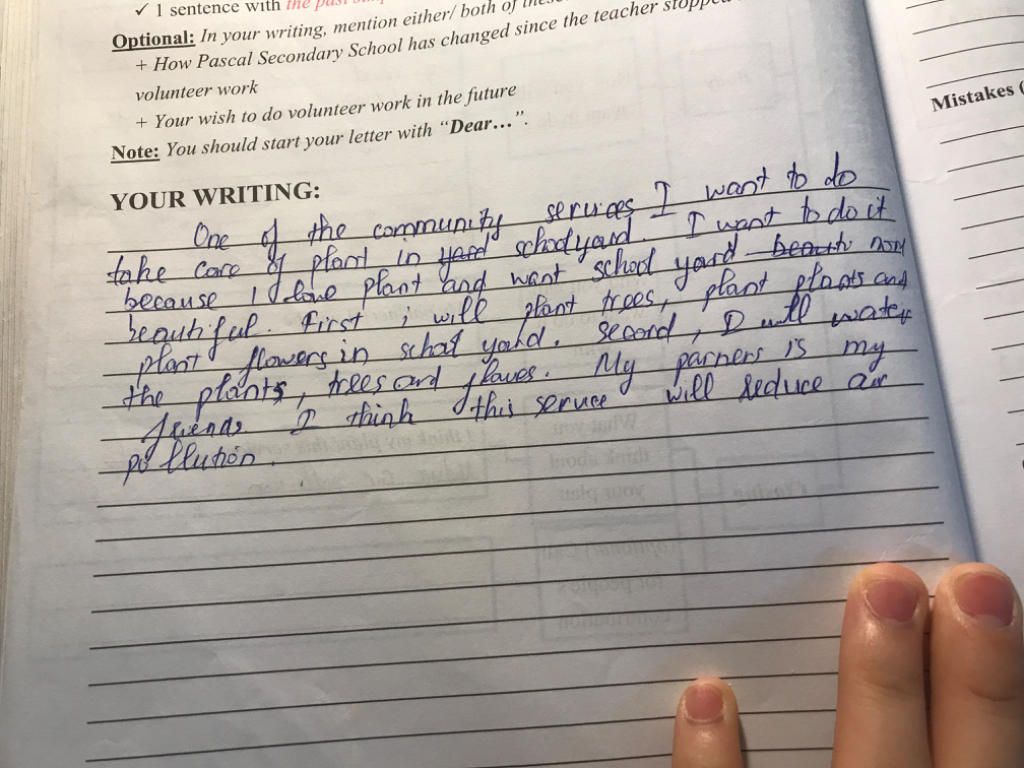 ✓ 1 sentence with the past
Optional: In your writing, mention either/ both of these
+ How Pascal Secondary School has changed since the teacher stopped
volunteer work
+ Your wish to do volunteer work in the future
Note: You should start your letter with “Dear…”.
Mistakes
YOUR WRITING:
One of the community services I want to do
take care of plant in yard schoolyard. I want to do it
because I love plant and want school yard beauti
beautiful. First i will plant trees, plant plants and
plant flowers in school yard. Second, I will water
the plants, trees and flowes. My parners is my
friends I think this service will reduce air
pollution.